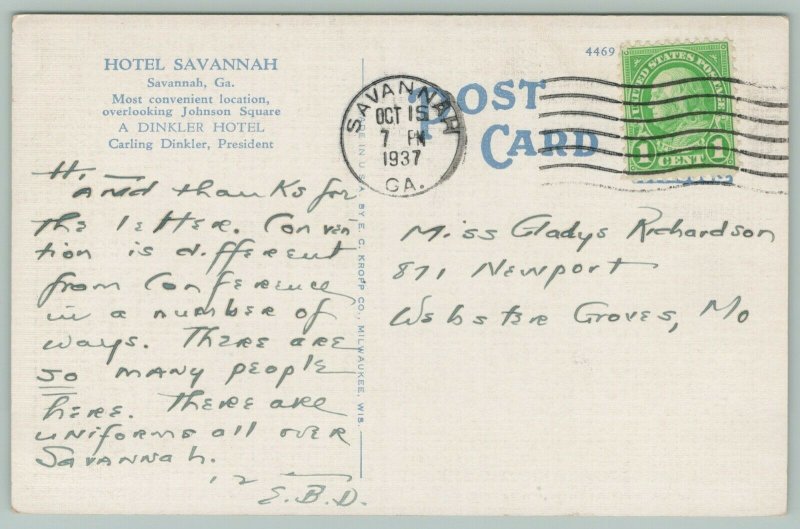 HOTEL SAVANNAH
Savannah, Ga.
Most convenient location,
overlooking Johnson Square
A DINKLER HOTEL
Carling Dinkler, President
4469
POST
CARD
SAVANNAH
OCT 15
7 PM
1937
GA.
UNITED STATES POSTAGE
1 CENT 1
MADE IN U.S.A. BY E. C. KROPP CO., MILWAUKEE, WIS.
Hi —
And thanks for
the letter. Conven
tion is different
from Conference
in a number of
ways. There are
so many people
here. There are
uniforms all over
Savannah.
E.B.D.
Miss Gladys Richardson
871 Newport
Webster Groves, Mo